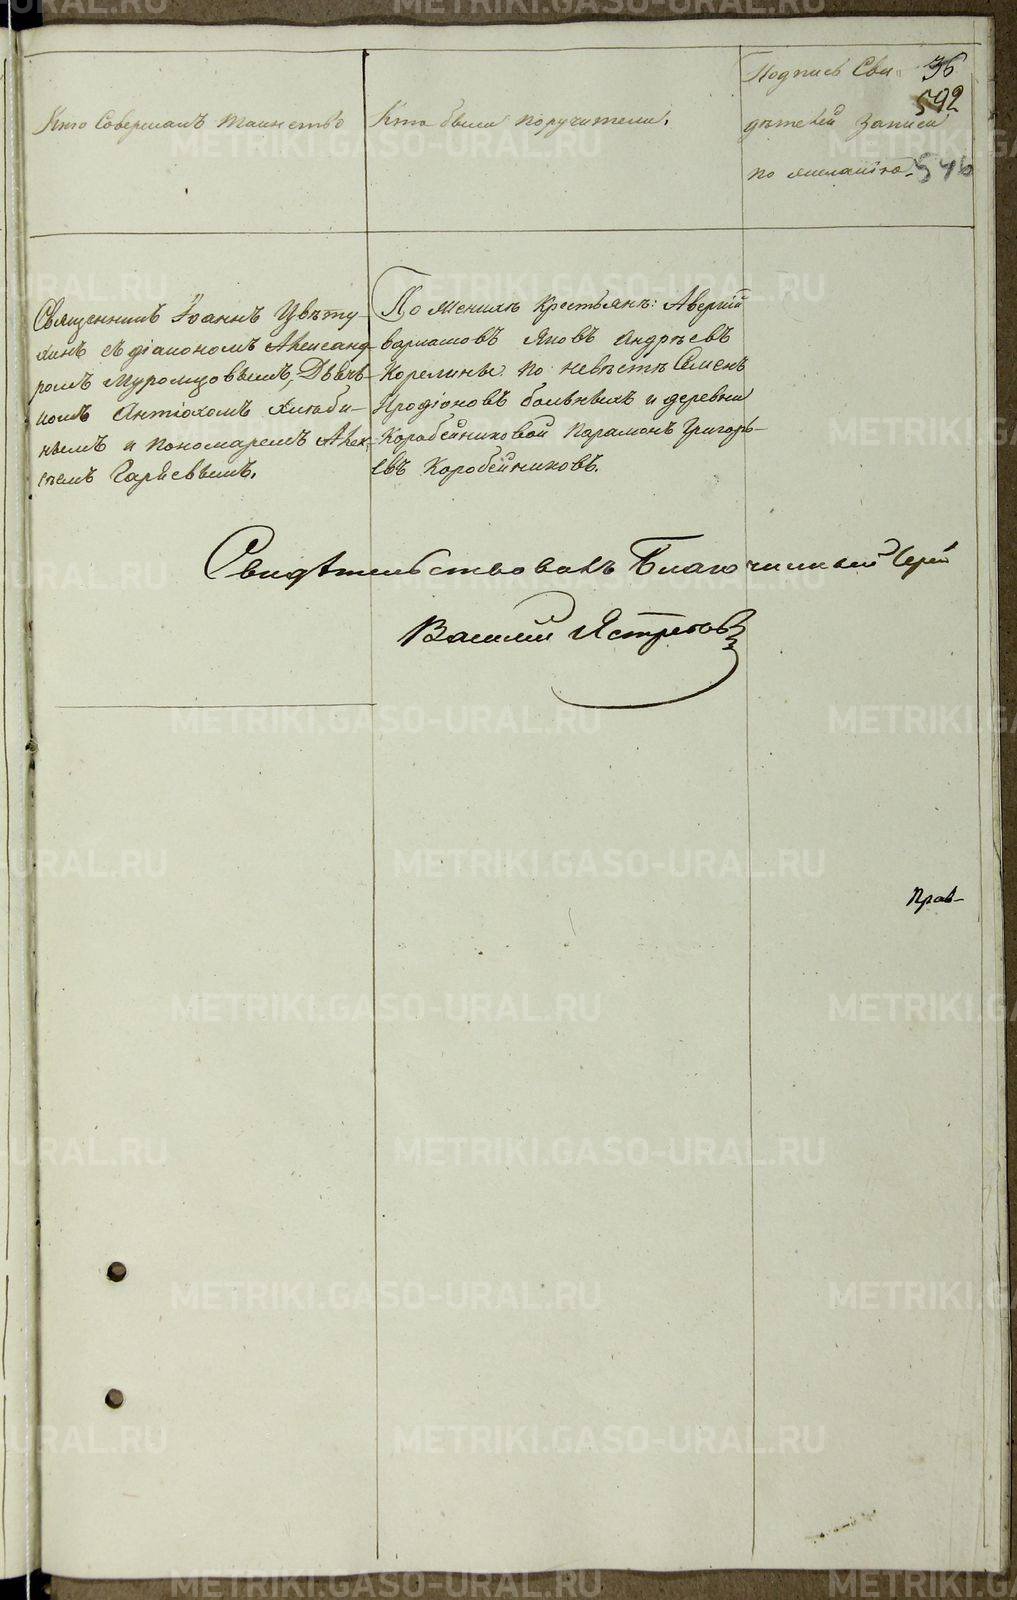 Подпись Сви- 36
592
Кто Совершалъ Таинство
Кто были поручители.
дѣтелей записи
по желанію. 546
Священникъ Іоаннъ Цвѣту-
хинъ съ діакономъ Александ-
ромъ Муромцовымъ, Дьяч-
комъ Антіохомъ Хлѣби-
нымъ и пономаремъ Алек-
сѣемъ Гаряевымъ.
По женихѣ крестьянъ: Аверкій
Яковъ Андрѣевъ
Корелины по невѣстѣ Семенъ
Иродіоновъ больныхъ и деревни
Коробейниковой Парамонъ Григорь-
евъ Коробейниковъ.
Свидѣтельствовалъ Благочинный Іерей
Василій Ястребовъ
Прав-
METRIKI.GASO-URAL.RU